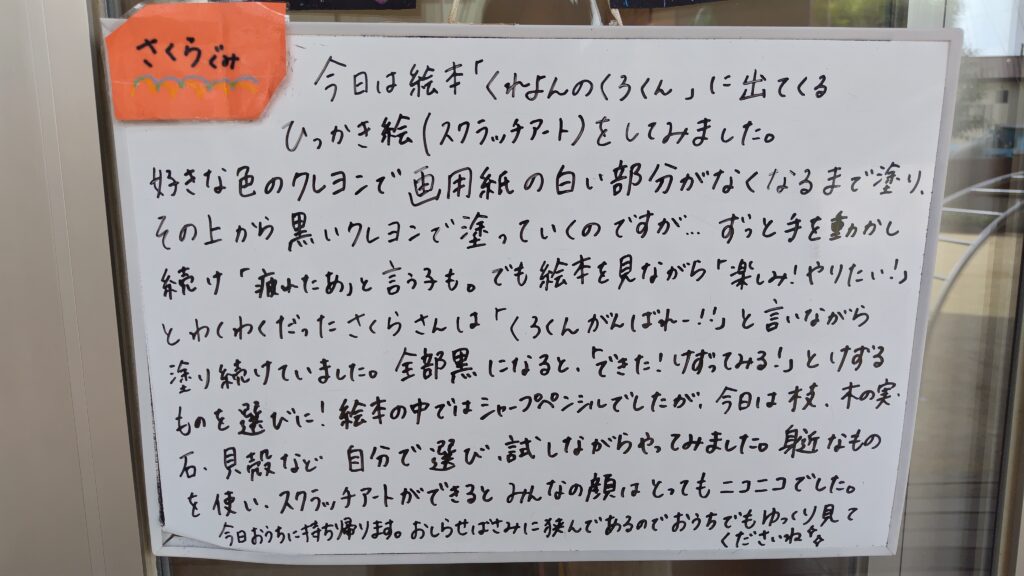 さくらぐみ
今日は絵本「くれよんのくろくん」に出てくる
ひっかき絵(スクラッチアート)をしてみました。
好きな色のクレヨンで画用紙の白い部分がなくなるまで塗り、
その上から黒いクレヨンで塗っていくのですが… ずっと手を動かし
続け「疲れたあ」と言う子も。でも絵本を見ながら「楽しみ!やりたい!」
とわくわくだったさくらさんは「くろくんがんばれー!!」と言いながら
塗り続けていました。全部黒になると、「できた!けずってみる!」とけずる
ものを選びに!絵本の中ではシャープペンシルでしたが、今日は枝、木の実、
石、貝殻など 自分で選び、試しながらやってみました。身近なもの
を使い、スクラッチアートができるとみんなの顔はとってもニコニコでした。
今日おうちに持ち帰ります。おしらせばさみに挟んであるのでおうちでもゆっくり見て
くださいね